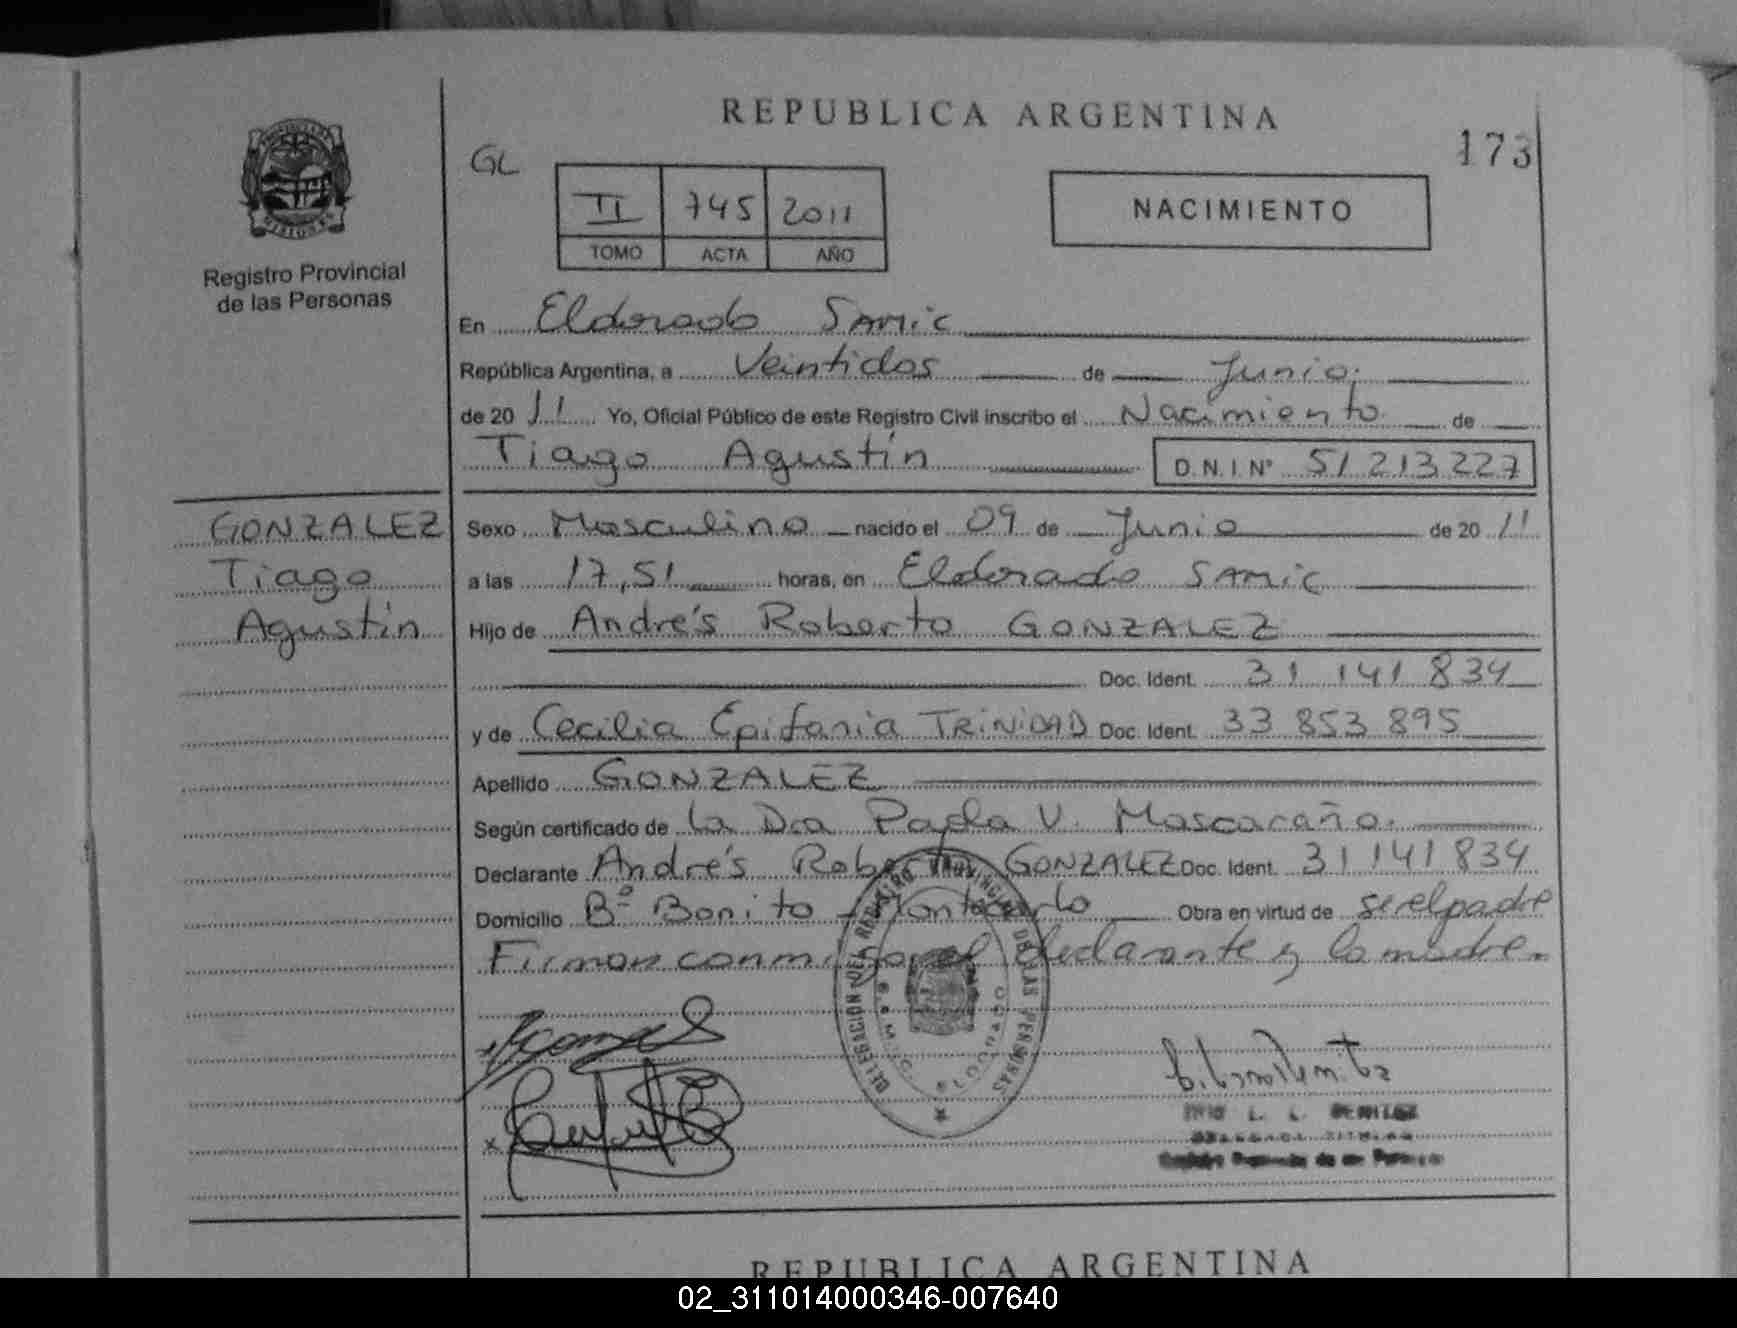 REPUBLICA ARGENTINA
173
GL
II 745 2011
TOMO ACTA AÑO
NACIMIENTO
PROVINCIA DE MISIONES
Registro Provincial
de las Personas
En Eldorado SAMIC
República Argentina, a Veintidos de Junio.
de 2011 Yo, Oficial Público de este Registro Civil inscribo el Nacimiento de
Tiago Agustín D.N.I. Nº 51 213 227
GONZALEZ
Tiago
Agustín
Sexo Masculino nacido el 09 de Junio de 2011
a las 17,51 horas, en Eldorado SAMIC
Hijo de Andrés Roberto GONZALEZ
Doc. Ident. 31 141 834
y de Cecilia Epifania TRINIDAD Doc. Ident. 33 853 895
Apellido GONZALEZ
Según certificado de la Dra Paola V. Mascaraño.
Declarante Andrés Roberto GONZALEZ Doc. Ident. 31 141 834
Domicilio Bº Bonito - Montecarlo Obra en virtud de ser el padre
Firman conmigo el declarante y la madre.
DELEGACION DEL REGISTRO PROVINCIAL DE LAS PERSONAS
ELDORADO
BENITEZ
REPUBLICA ARGENTINA
02_311014000346-007640